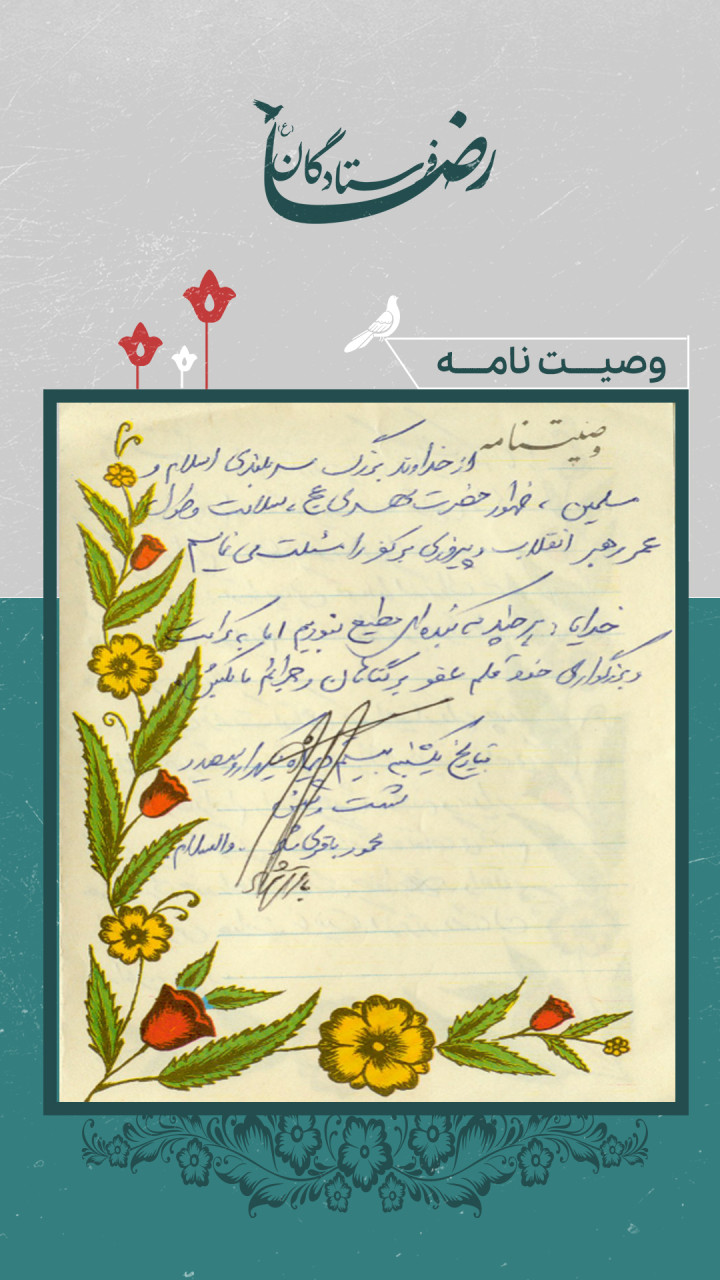 فرستادگان رضا (ع)
وصیت نامه
وصیتنامه
از خداوند بزرگ سربلندی اسلام و
مسلمین ، ظهور حضرت مهدی عج ، سلامت و طول
عمر رهبر انقلاب و پیروزی بر کفر را مسئلت می نمایم
خدایا ، هر چند که بنده ای مطیع نبودیم اما به کرامت
و بزرگواری خود قلم عفو بر گناهان و جرائم ما بکش
بتاریخ یکشنبه بیستم ماه یکهزار و سیصد و
شصت و
محمود باقری .. والسلام